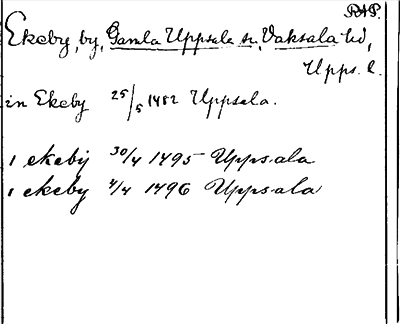 RAP.
Ekeby, by, Gamla Uppsala sn, Vaksala hd,
Upps. l.
in Ekeby 25/5 1482 Uppsala.
i ekebij 30/4 1495 Uppsala
i ekeby 4/4 1496 Uppsala